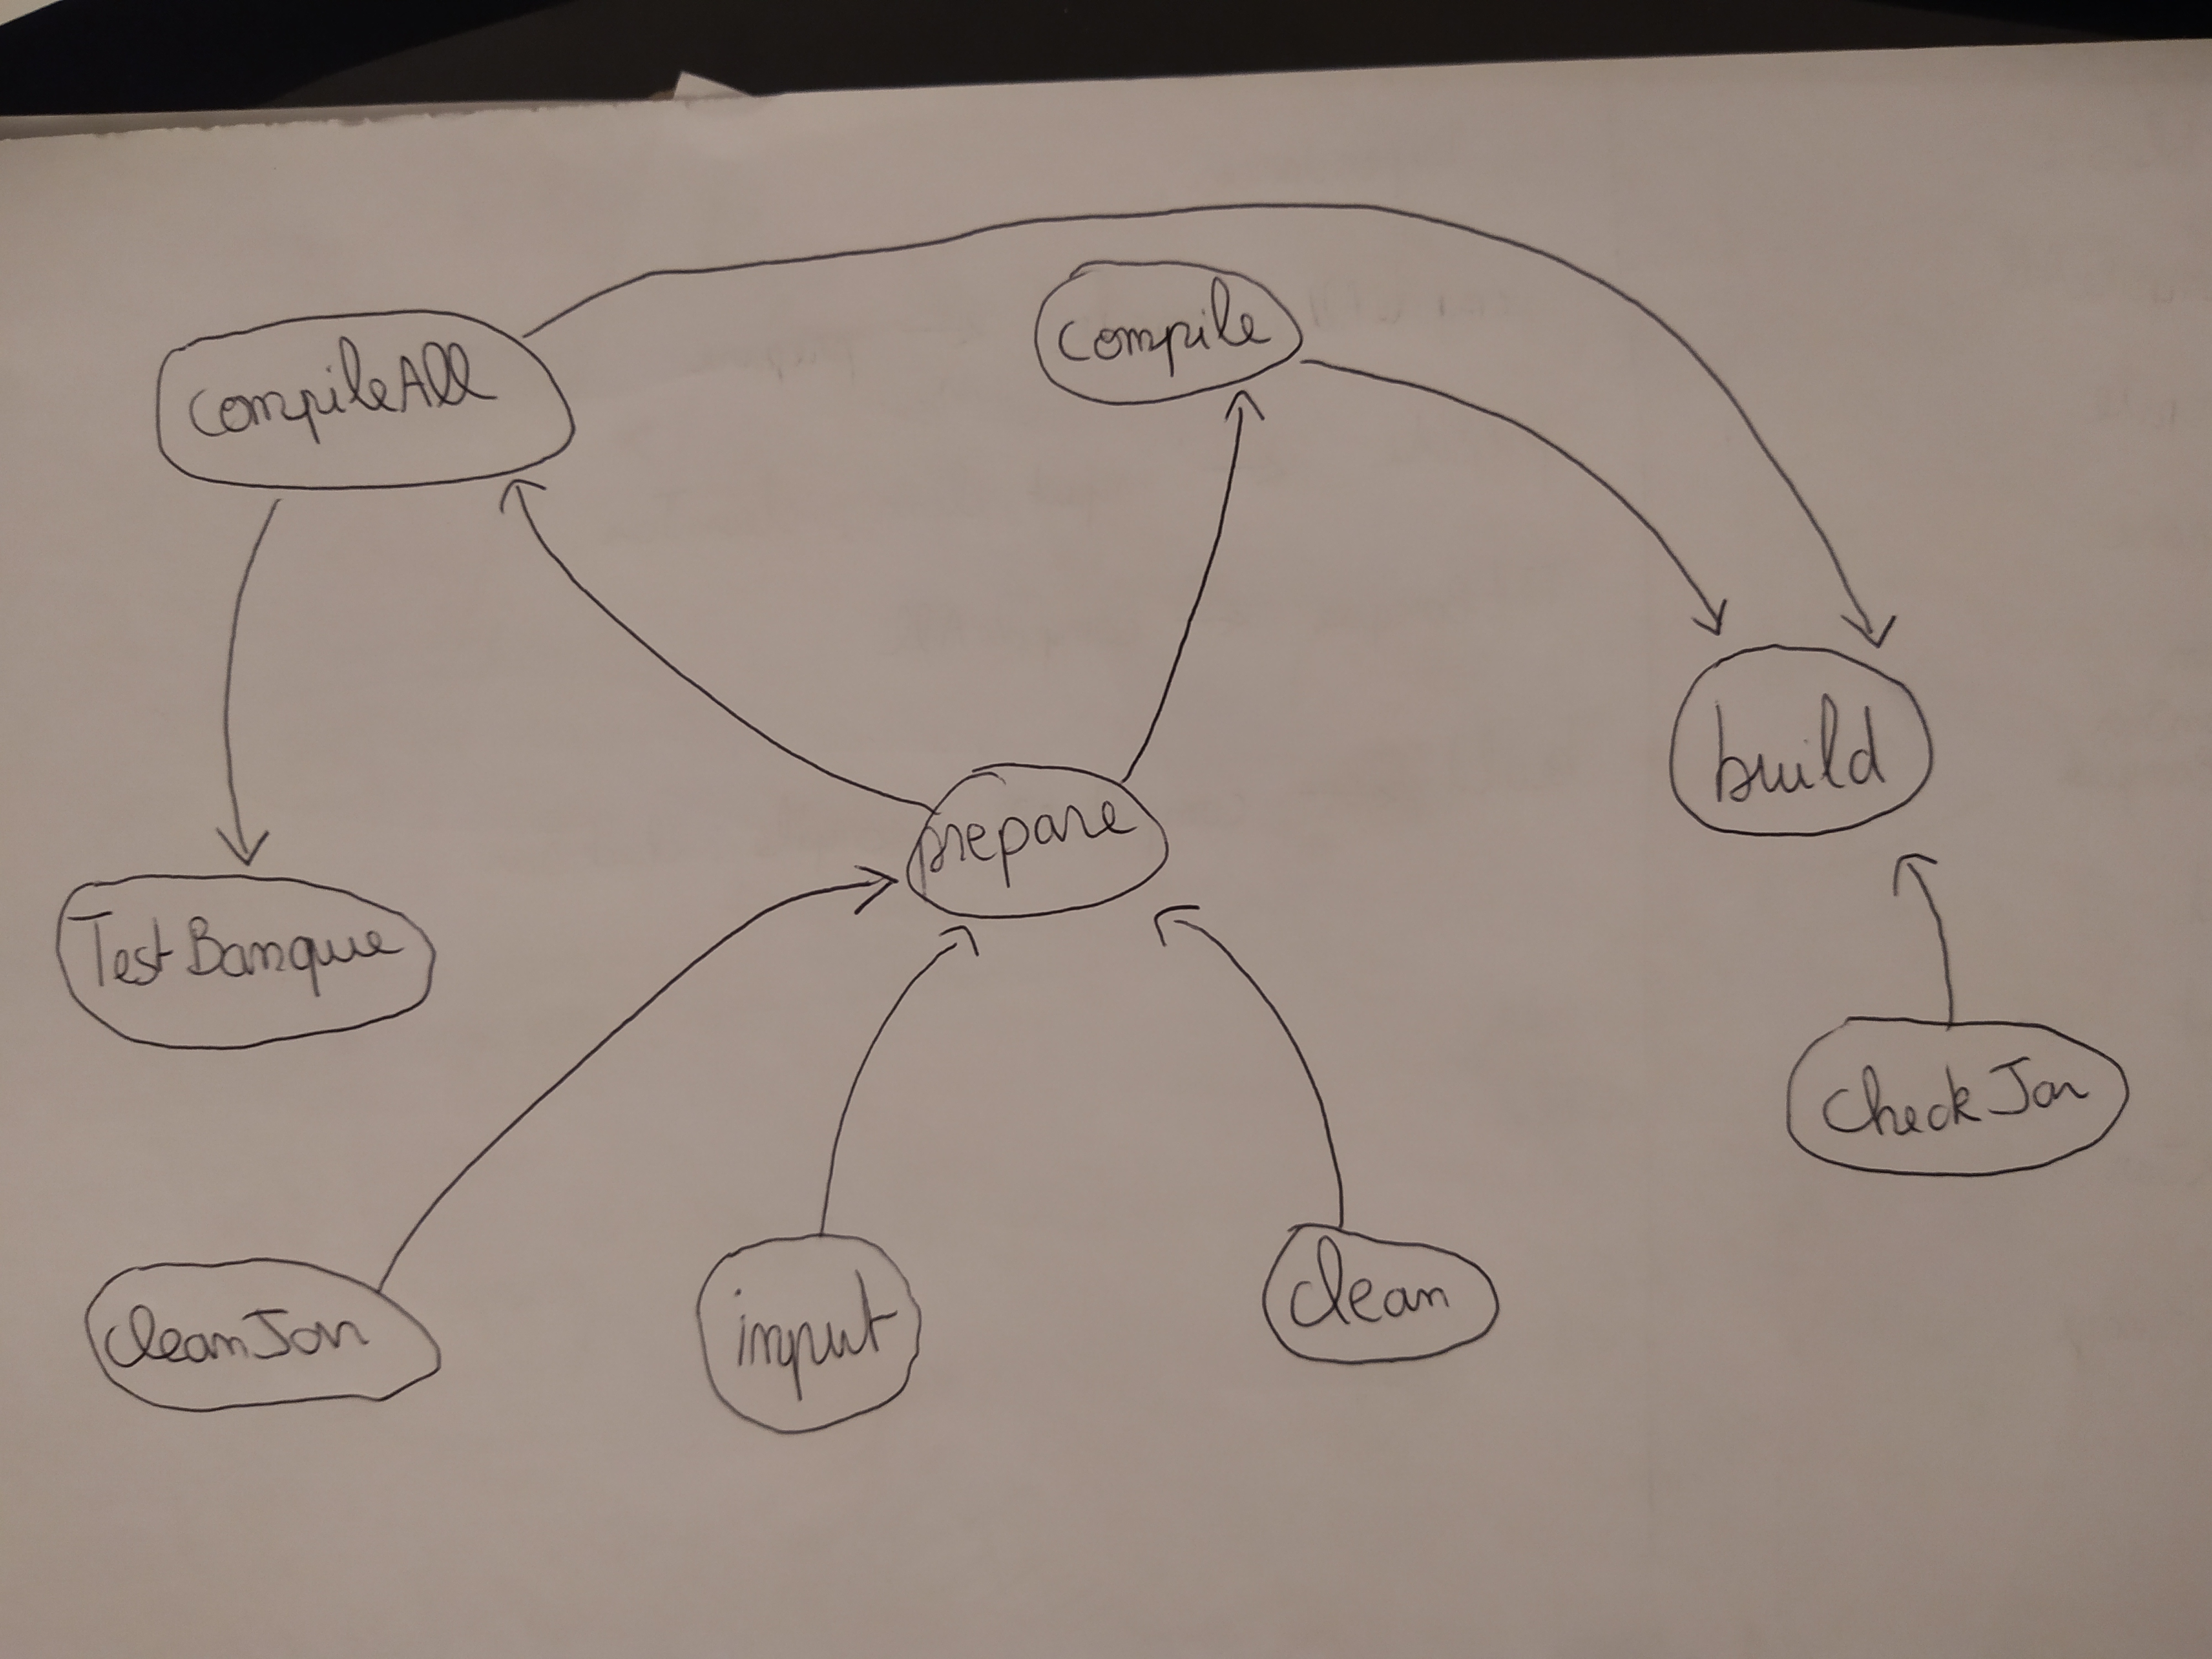 compileAll
compile
prepare
build
TestBanque
checkJar
cleanJar
input
clean